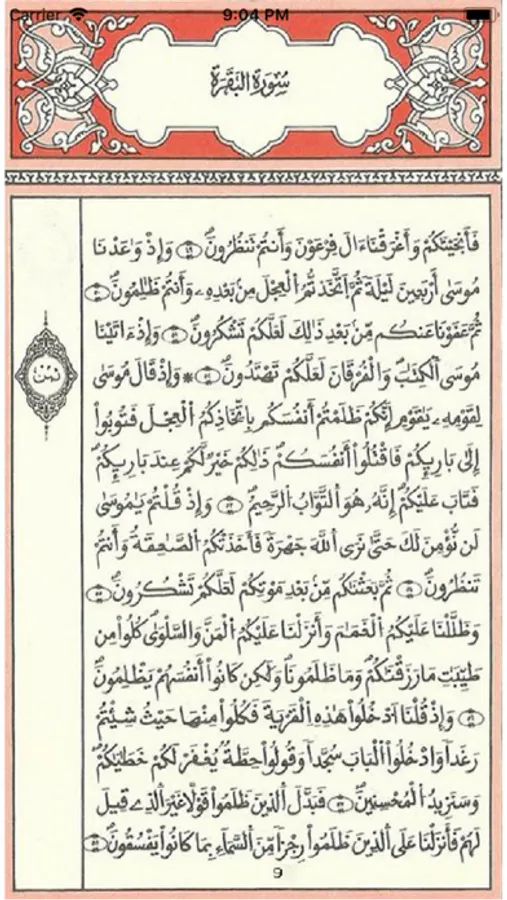 Carrier 9:04 PM
سُورَةُ الْبَقَرَةِ
فَأَنجَيْنَٰكُمْ وَأَغْرَقْنَا ءَالَ فِرْعَوْنَ وَأَنتُمْ تَنظُرُونَۖ وَإِذْ وَٰعَدْنَا
مُوسَىٰ أَرْبَعِينَ لَيْلَةٗ ثُمَّ اَتَّخَذتُّمُ اُلْعِجْلَ مِنۢ بَعْدِهِۦ وَأَنتُمْ ظَٰلِمُونَۖ
ثُمَّ عَفَوْنَا عَنكُم مِّنۢ بَعْدِ ذَٰلِكَ لَعَلَّكُمْ تَشْكُرُونَۖ وَإِذْ ءَاتَيْنَا
مُوسَى اَلْكِتَٰبَ وَالْفُرْقَانَ لَعَلَّكُمْ تَهْتَدُونَۖ * وَإِذْ قَالَ مُوسَىٰ
ثمن
لِقَوْمِهِۦ يَٰقَوْمِ إِنَّكُمْ ظَلَمْتُمُۥٓ أَنفُسَكُم بِاتِّخَاذِكُمُ اُلْعِجْلَ فَتُوبُوٓاْ
إِلَىٰ بَارِئِكُمْ فَاقْتُلُوٓاْ أَنفُسَكُمْۖ ذَٰلِكُمْ خَيْرٞ لَّكُمْ عِندَ بَارِئِكُمْۖ
فَتَابَ عَلَيْكُمُۥٓۖ إِنَّهُۥ هُوَ اَلتَّوَّابُ اُلرَّحِيمُۖ وَإِذْ قُلْتُمْ يَٰمُوسَىٰ
لَن نُّومِنَ لَكَ حَتَّىٰ نَرَى اَللَّهَ جَهْرَةٗ فَأَخَذَتْكُمُ اُلصَّٰعِقَةُ وَأَنتُمْ
تَنظُرُونَۖ ثُمَّ بَعَثْنَٰكُم مِّنۢ بَعْدِ مَوْتِكُمْ لَعَلَّكُمْ تَشْكُرُونَۖ
وَظَلَّلْنَا عَلَيْكُمُ اُلْغَمَٰمَ وَأَنزَلْنَا عَلَيْكُمُ اُلْمَنَّ وَالسَّلْوَىٰۖ كُلُواْ مِن
طَيِّبَٰتِ مَا رَزَقْنَٰكُمْۖ وَمَا ظَلَمُونَاۖ وَلَٰكِن كَانُوٓاْ أَنفُسَهُمْ يَظْلِمُونَۖ
وَإِذْ قُلْنَا اَدْخُلُواْ هَٰذِهِ اِلْقَرْيَةَ فَكُلُواْ مِنْهَا حَيْثُ شِئْتُمْ
رَغَداٗ وَادْخُلُواْ اُلْبَابَ سُجَّداٗ وَقُولُواْ حِطَّةٞ يُغْفَرْ لَكُمْ خَطَٰيَٰكُمْۖ
وَسَنَزِيدُ اُلْمُحْسِنِينَۖ فَبَدَّلَ اَلذِينَ ظَلَمُواْ قَوْلاً غَيْرَ اَلذِے قِيلَ
لَهُمْ فَأَنزَلْنَا عَلَى اَلذِينَ ظَلَمُواْ رِجْزاٗ مِّنَ اَلسَّمَآءِ بِمَا كَانُواْ يَفْسُقُونَۖ
9